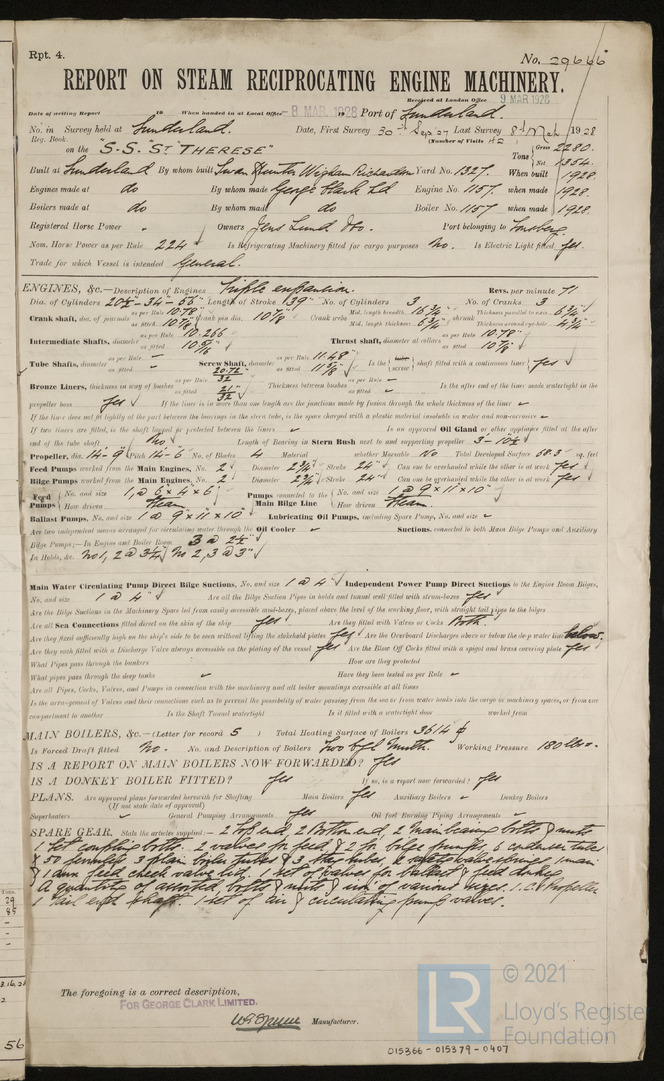 Rpt. 4.
No. 29666
REPORT ON STEAM RECIPROCATING ENGINE MACHINERY.
Received at London Office 9 MAR 1928
Date of writing Report 19 When handed in at Local Office 8 MAR. 1928 19 Port of Sunderland.
No. in Survey held at Sunderland. Date, First Survey 30th Sep. 27 Last Survey 8th Mch 1928
Reg. Book. (Number of Visits 42
on the "S.S. "ST THERESE" Tons Gross 2280. Net 1354.
Built at Sunderland By whom built Swan Hunter Wigham Richardson Yard No. 1327. When built 1928.
Engines made at do By whom made George Clark Ld Engine No. 1157. when made 1928.
Boilers made at do By whom made do Boiler No. 1157 when made 1928.
Registered Horse Power - Owners Jens Lund & Co. Port belonging to Tonsberg.
Nom. Horse Power as per Rule 224 Is Refrigerating Machinery fitted for cargo purposes No. Is Electric Light fitted Yes.
Trade for which Vessel is intended General.
ENGINES, &c.—Description of Engines Triple expansion. Revs. per minute 71
Dia. of Cylinders 20½-34-56" Length of Stroke 39" No. of Cylinders 3 No. of Cranks 3
Crank shaft, dia. of journals as per Rule 10.78" as fitted 10⅞" Crank pin dia. 10⅞" Crank webs Mid. length breadth 16¾" Mid. length thickness 6¾" shrunk Thickness parallel to axis 6¾" Thickness around eye-hole 4¾"
Intermediate Shafts, diameter as per Rule 10.266 as fitted 10 5/16 Thrust shaft, diameter at collars as per Rule 10.78" as fitted 10⅞"
Tube Shafts, diameter as per Rule - as fitted - Screw Shaft, diameter as per Rule 11.48" as fitted 11⅝" Is the tube screw shaft fitted with a continuous liner Yes
Bronze Liners, thickness in way of bushes as per Rule 20.72/32 as fitted 21/32 Thickness between bushes as per Rule - as fitted - Is the after end of the liner made watertight in the
propeller boss Yes If the liner is in more than one length are the junctions made by fusion through the whole thickness of the liner -
If the liner does not fit tightly at the part between the bearings in the stern tube, is the space charged with a plastic material insoluble in water and non-corrosive -
If two liners are fitted, is the shaft lapped or protected between the liners - Is an approved Oil Gland or other appliance fitted at the after
end of the tube shaft No Length of Bearing in Stern Bush next to and supporting propeller 3-10½
Propeller, dia. 14-9" Pitch 14-6 No. of Blades 4 Material whether Moveable No Total Developed Surface 68.3 sq. feet
Feed Pumps worked from the Main Engines, No. 2 Diameter 2¾" Stroke 24" Can one be overhauled while the other is at work Yes
Bilge Pumps worked from the Main Engines, No. 2 Diameter 2¾" Stroke 24" Can one be overhauled while the other is at work Yes
Feed Pumps No. and size 1, @ 6 x 4 x 6 How driven Steam Pumps connected to the Main Bilge Line No. and size 1 @ 9" x 11" x 10" How driven Steam.
Ballast Pumps, No. and size 1 @ 9" x 11" x 10" Lubricating Oil Pumps, including Spare Pump, No. and size -
Are two independent means arranged for circulating water through the Oil Cooler - Suctions, connected to both Main Bilge Pumps and Auxiliary
Bilge Pumps;—In Engine and Boiler Room 3 @ 2½"
In Holds, &c. No 1, 2 @ 3¼" No 2, 3 @ 3"
Main Water Circulating Pump Direct Bilge Suctions, No. and size 1 @ 4" Independent Power Pump Direct Suctions to the Engine Room Bilges,
No. and size 1 @ 4" Are all the Bilge Suction Pipes in holds and tunnel well fitted with strum-boxes Yes
Are the Bilge Suctions in the Machinery Space led from easily accessible mud-boxes, placed above the level of the working floor, with straight tail pipes to the bilges
Are all Sea Connections fitted direct on the skin of the ship Yes Are they fitted with Valves or Cocks Both.
Are they fixed sufficiently high on the ship's side to be seen without lifting the stokehold plates Yes Are the Overboard Discharges above or below the deep water line below
Are they each fitted with a Discharge Valve always accessible on the plating of the vessel Yes Are the Blow Off Cocks fitted with a spigot and brass covering plate Yes
What Pipes pass through the bunkers How are they protected
What pipes pass through the deep tanks - Have they been tested as per Rule -
Are all Pipes, Cocks, Valves, and Pumps in connection with the machinery and all boiler mountings accessible at all times
Is the arrangement of Valves and their connections such as to prevent the possibility of water passing from the sea or from water tanks into the cargo or machinery spaces, or from one
compartment to another Is the Shaft Tunnel watertight Is it fitted with a watertight door worked from
MAIN BOILERS, &c.—(Letter for record S) Total Heating Surface of Boilers 3614 ф
Is Forced Draft fitted No. No. and Description of Boilers Two Cyl Mult. Working Pressure 180 lbs.
IS A REPORT ON MAIN BOILERS NOW FORWARDED? Yes
IS A DONKEY BOILER FITTED? Yes If so, is a report now forwarded? Yes
PLANS. Are approved plans forwarded herewith for Shafting Main Boilers Yes Auxiliary Boilers - Donkey Boilers
(If not state date of approval)
Superheaters - General Pumping Arrangements Yes Oil fuel Burning Piping Arrangements -
SPARE GEAR. State the articles supplied:— 2 Top end, 2 Bottom end, 2 Main bearing bolts & nuts
1 set coupling bolts. 2 valves for feed & 2 for bilge pumps, 6 condenser tubes
& 50 ferrules 3 plain boiler tubes & 3 stay tubes, valve springs 1 main
& 1 aux feed check valve lid. 1 set of valves for ballast & feed donkey
A quantity of assorted bolts & nuts & iron of various sizes. 1 C.I. Propeller
1 tail end shaft. 1 set of air & circulating pump valves.
The foregoing is a correct description,
FOR GEORGE CLARK LIMITED.
Manufacturer.
© 2021
LR
Lloyd's Register
Foundation
015366-015379-0407
29
85
3.16.28
2
56